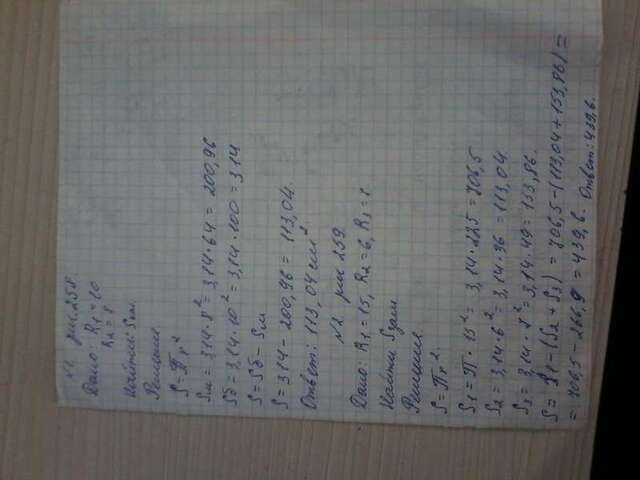 №1 рис. 258.
Дано: R1 = 10
R2 = 8
Найти: Sк.
Решение.
S = Πr²
Sм = 3,14 · 8² = 3,14 · 64 = 200,96
Sб = 3,14 · 10² = 3,14 · 100 = 314
S = Sб - Sм
S = 314 - 200,96 = 113,04.
Ответ: 113,04 см²
№2 рис 259.
Дано: R1 = 15, R2 = 6, R3 =
Найти Sзакр.
Решение.
S = Πr².
S1 = Π · 15² = 3,14 · 225 = 706,5
S2 = 3,14 · 6² = 3,14 · 36 = 113,04
S3 = 3,14 · 7² = 3,14 · 49 = 153,86.
S = S1 - (S2 + S3) = 706,5 - (113,04 + 153,86) =
= 706,5 - 266,9 = 439,6. Ответ: 439,6.